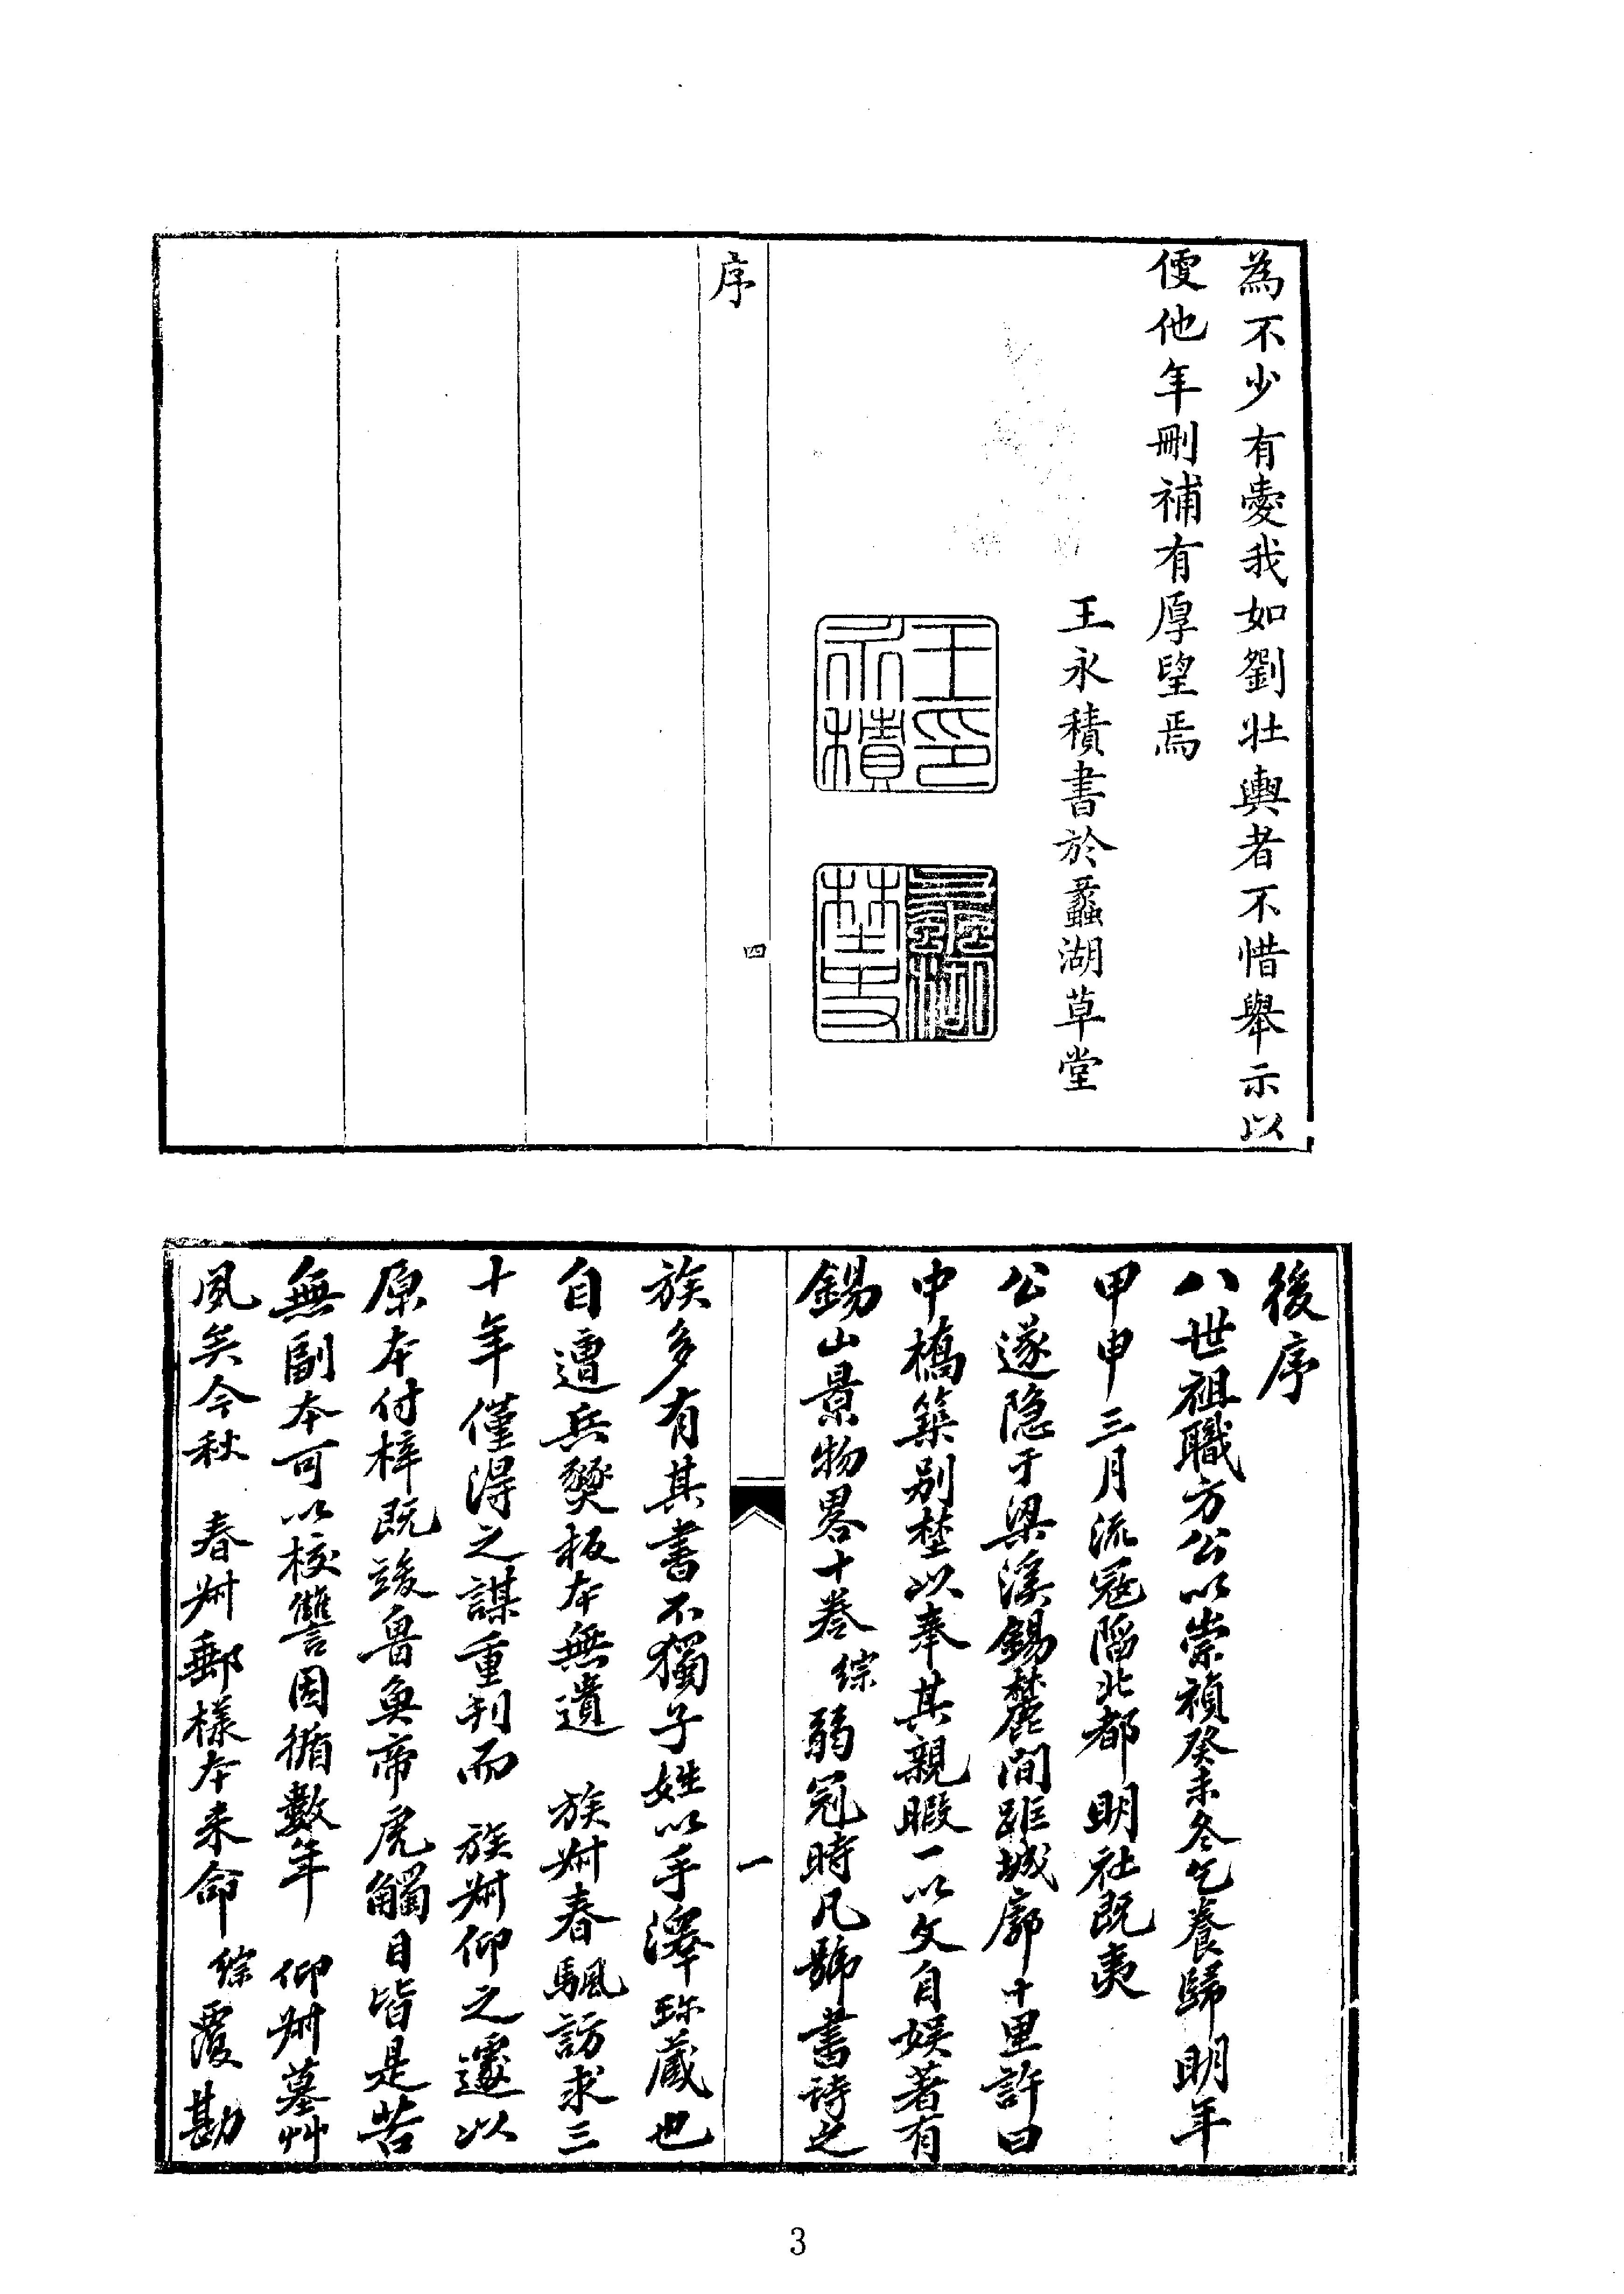 為不少有愛我如劉壯輿者不惜舉示以
便他年刪補有厚望焉
王永積書於蠡湖草堂
王印永積
蠡湖埜史
序
四
後序
八世祖職方公以崇禎癸未冬乞養歸明年
甲申三月流寇陷北都明社既夷
公遂隐于梁溪錫麓間距城廓十里許曰
中橋築别埜以奉其親暇一以文自娱著有
錫山景物畧十卷綜弱冠時凡號書诗之
一
族多有其書不獨子姓以手澤珎蔵也
自遭兵燹板本無遺族尗春颿訪求三
十年僅淂之謀重刊而族尗仰之遽以
原本付梓既竣魯魚帝虎觸目皆是苦
無副本可以校讐因循數年仰尗墓艸
夙矣今秋春尗郵樣本来命綜覆勘
3